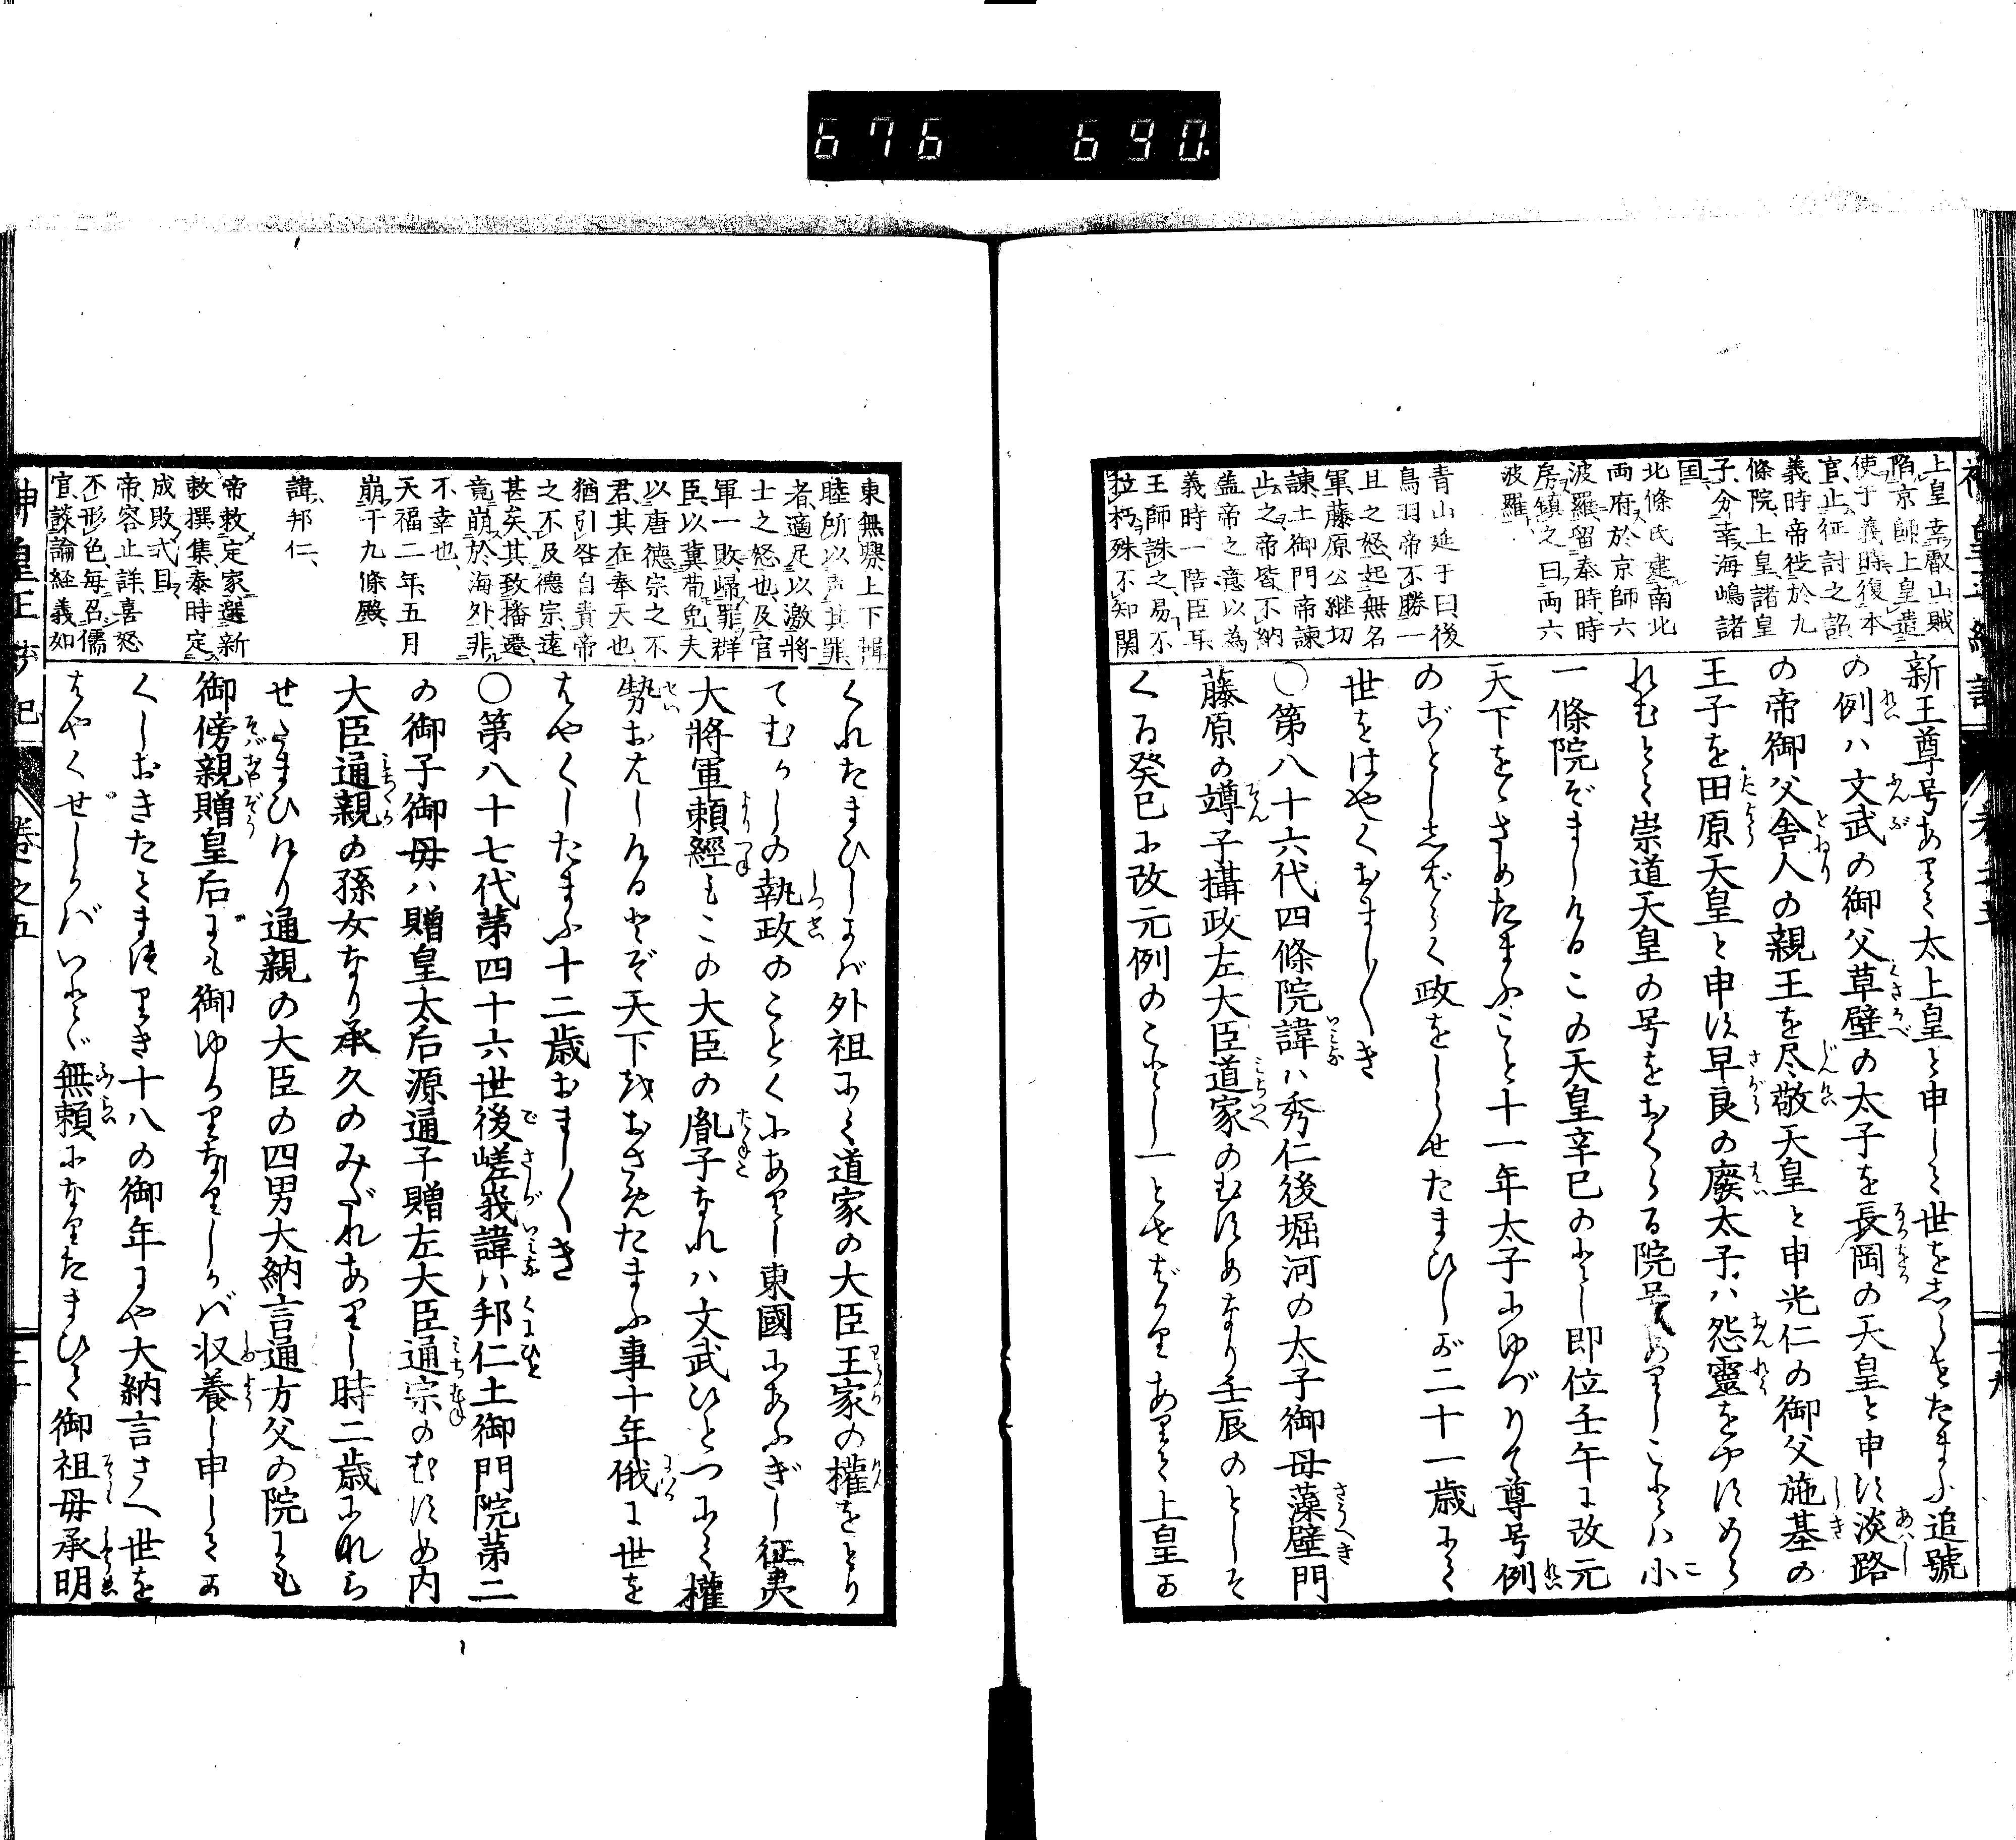 676 690.
上皇幸叡山賊
陷京師上皇遣
使于義時復本
官止征討之詔
義時帝徙於九
條院上皇諸皇
子分幸海嶋諸
国
北條氏建南北
両府於京師六
波羅留泰時時
房鎮之曰両六
波羅
青山延于曰後
鳥羽帝不勝一
且之怒起無名
軍藤原公継切
諫土御門帝諫
止之帝皆不納
盖帝之意以為
義時一陪臣耳
王師誅之易不
拉朽殊不知関
新王尊号ありて太上皇と申して世をしらせたまふ追號
の例ハ文武の御父草壁の太子を長岡の天皇と申す淡路
の帝御父舎人の親王を尽敬天皇と申光仁の御父施基の
王子を田原天皇と申す早良の廢太子ハ怨靈をやすめら
れむとて崇道天皇の号をおくらる院号ありしことハ小
一條院ぞましける この天皇辛巳のとし即位壬午に改元
天下をゝさめたまふこと十一年太子にゆづりて尊号例
のごとししばらく政をしらせたまひしが二十一歳にて
世をはやくおまし〱き
〇第八十六代四條院諱ハ秀仁後堀河の太子御母藻壁門
藤原の竴子攝政左大臣道家のむすめなり壬辰のとしそ
くゐ癸巳に改元例のことし一とせばかりありて上皇か
東無釁上下輯
睦所以声其罪
者適足以激将
士之怒也及官
軍一敗歸罪群
臣以冀苟免夫
以唐德宗之不
君其在奉天也
猶引咎自責帝
之不及德宗遠
甚矣其致播遷
竟崩於海外非
不幸也
天福二年五月
崩于九條殿
諱邦仁
帝敕定家選新
敕撰集泰時定
成敗式目
帝容止詳喜怒
不形色毎召儒
官談論経義如
くれたまひしかば外祖にて道家の大臣王家の權をとり
てむかしの執政のことくにありし東國にあふぎし征夷
大將軍頼經もこの大臣の胤子なれハ文武ひとつにて權
勢おはしけるとぞ天下をおさめたまふ事十年俄に世を
はやくしたまふ十二歳おまし〱き
〇第八十七代第四十六世後嵯峩諱ハ邦仁土御門院第二
の御子御母ハ贈皇太后源通子贈左大臣通宗のむすめ内
大臣通親の孫女なり承久のみだれありし時二歳になら
せたまひけり通親の大臣の四男大納言通方父の院にも
御傍親贈皇后にも御ゆかりなりしかば収養し申してか
くしおきたてまつりき十八の御年にや大納言さへ世を
はやくせしかばいとゞ無頼になりたまひて御祖母承明
神皇正統記
卷之五